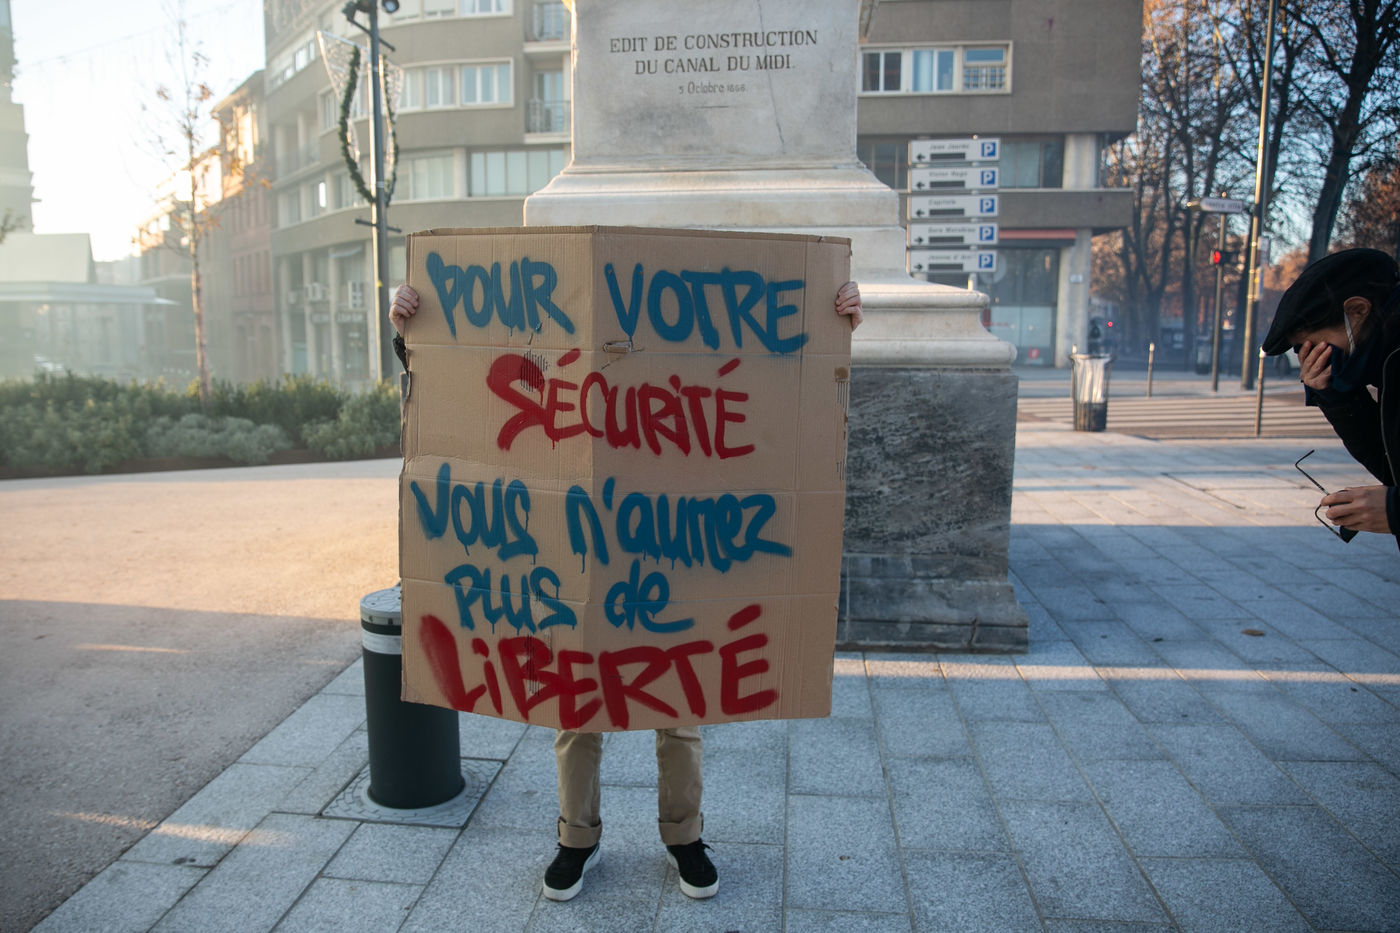 EDIT DE CONSTRUCTION
DU CANAL DU MIDI.
5 Octobre 1666.
Jean Jaurès P
Victor Hugo P
Capitole P
P
Jeanne d'Arc P
POUR VOTRE
SÉCURITÉ
VOUS N'AUREZ
PLUS de
LiBERTÉ